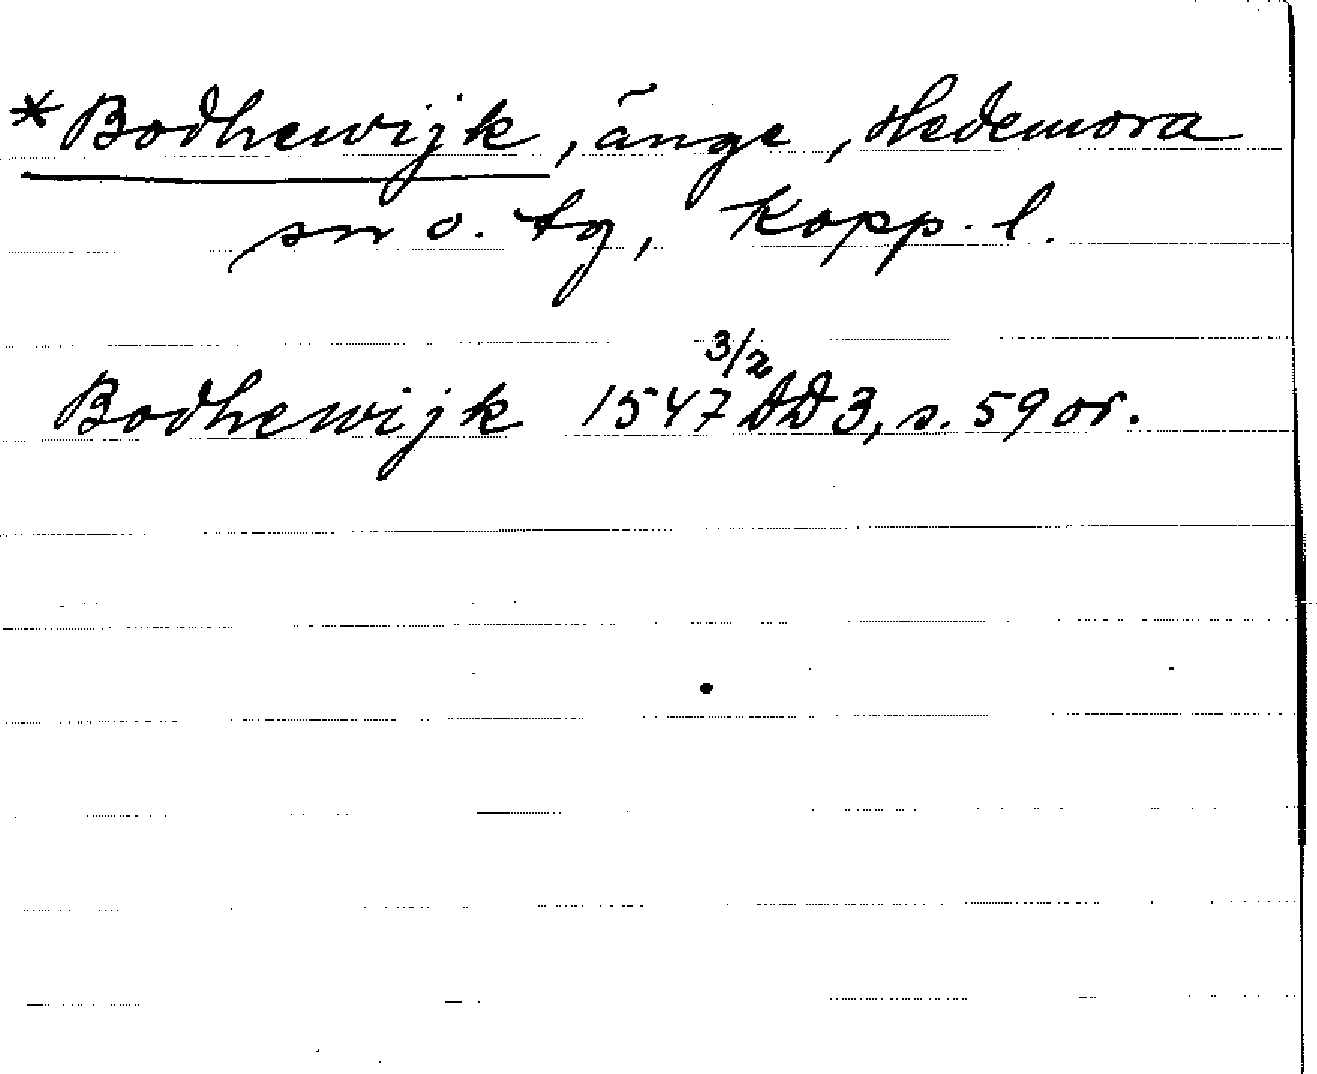 *Bodhewijk, änge, Hedemora
sn o. tg, Kopp. l.
Bodhewijk 1547 3/2 DD 3, s. 59 or.